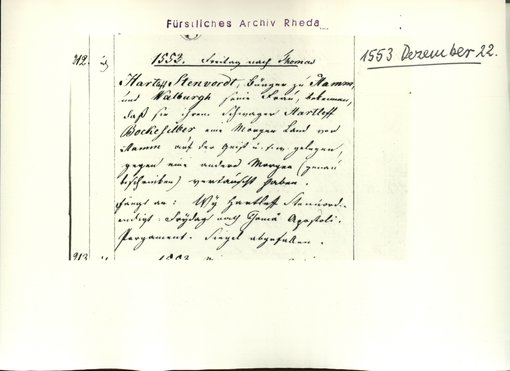 Fürstliches Archiv Rheda
312.
1553. Freitag nach Thomas
1553 Dezember 22.
Hartleff Stenvordt, Bürger zu Hamm,
und Walburgh seine Frau, bekennen,
daß sie ihrem Schwager Hartleff
Bockesilber eine Morgen Land vor
Hamm auf der Geist u.s.w. gelegen,
gegen eine andere Morgen (genau
beschrieben) vertauscht haben.
fängt an: Wÿ Hartleff Stenvord.
endigt: Frÿdag nach Apostoli.
Pergament. Siegel abgefallen.
313.